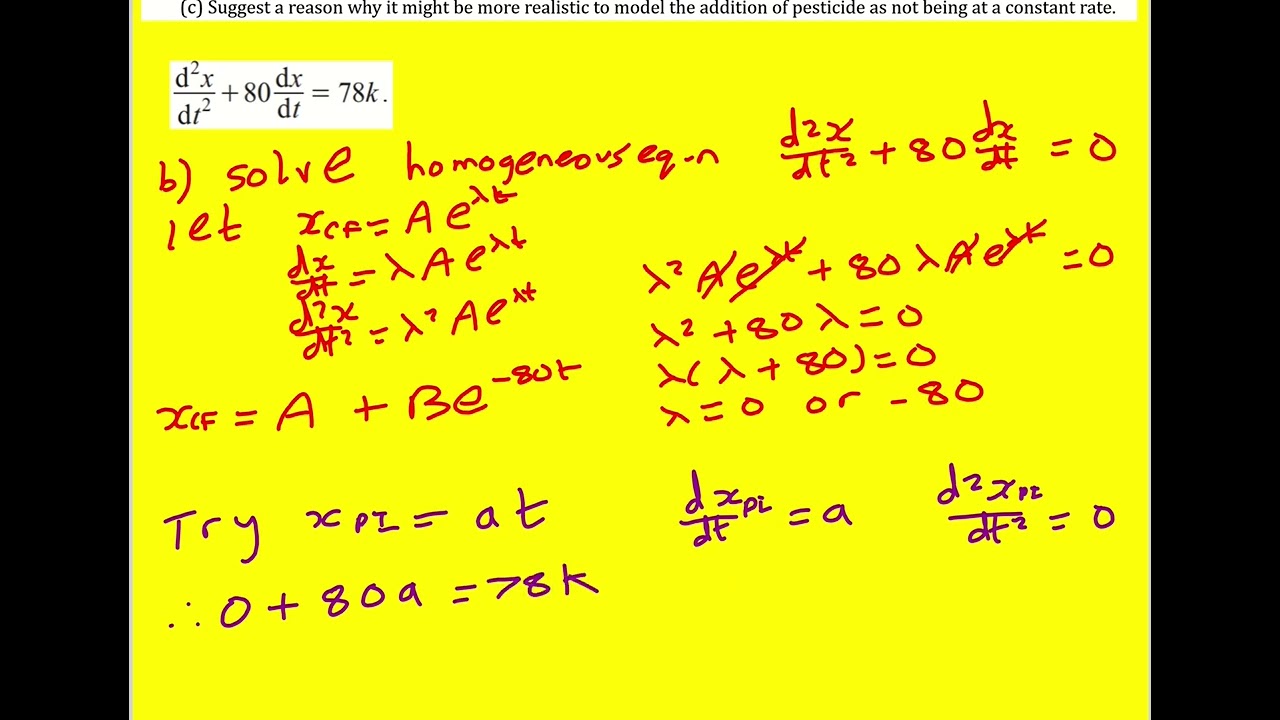 (c) Suggest a reason why it might be more realistic to model the addition of pesticide as not being at a constant rate.
d²x/dt² + 80 dx/dt = 78k.
b) solve homogeneous eq.n d²x/dt² + 80 dx/dt = 0
let x_CF = A e^λt
dx/dt = λ A e^λt
d²x/dt² = λ² A e^λt
λ² A e^λt + 80 λ A e^λt = 0
λ² + 80 λ = 0
λ(λ + 80) = 0
λ = 0 or -80
x_CF = A + B e^-80t
Try x_PI = at
dx_PI/dt = a
d²x_PI/dt² = 0
∴ 0 + 80a = 78k